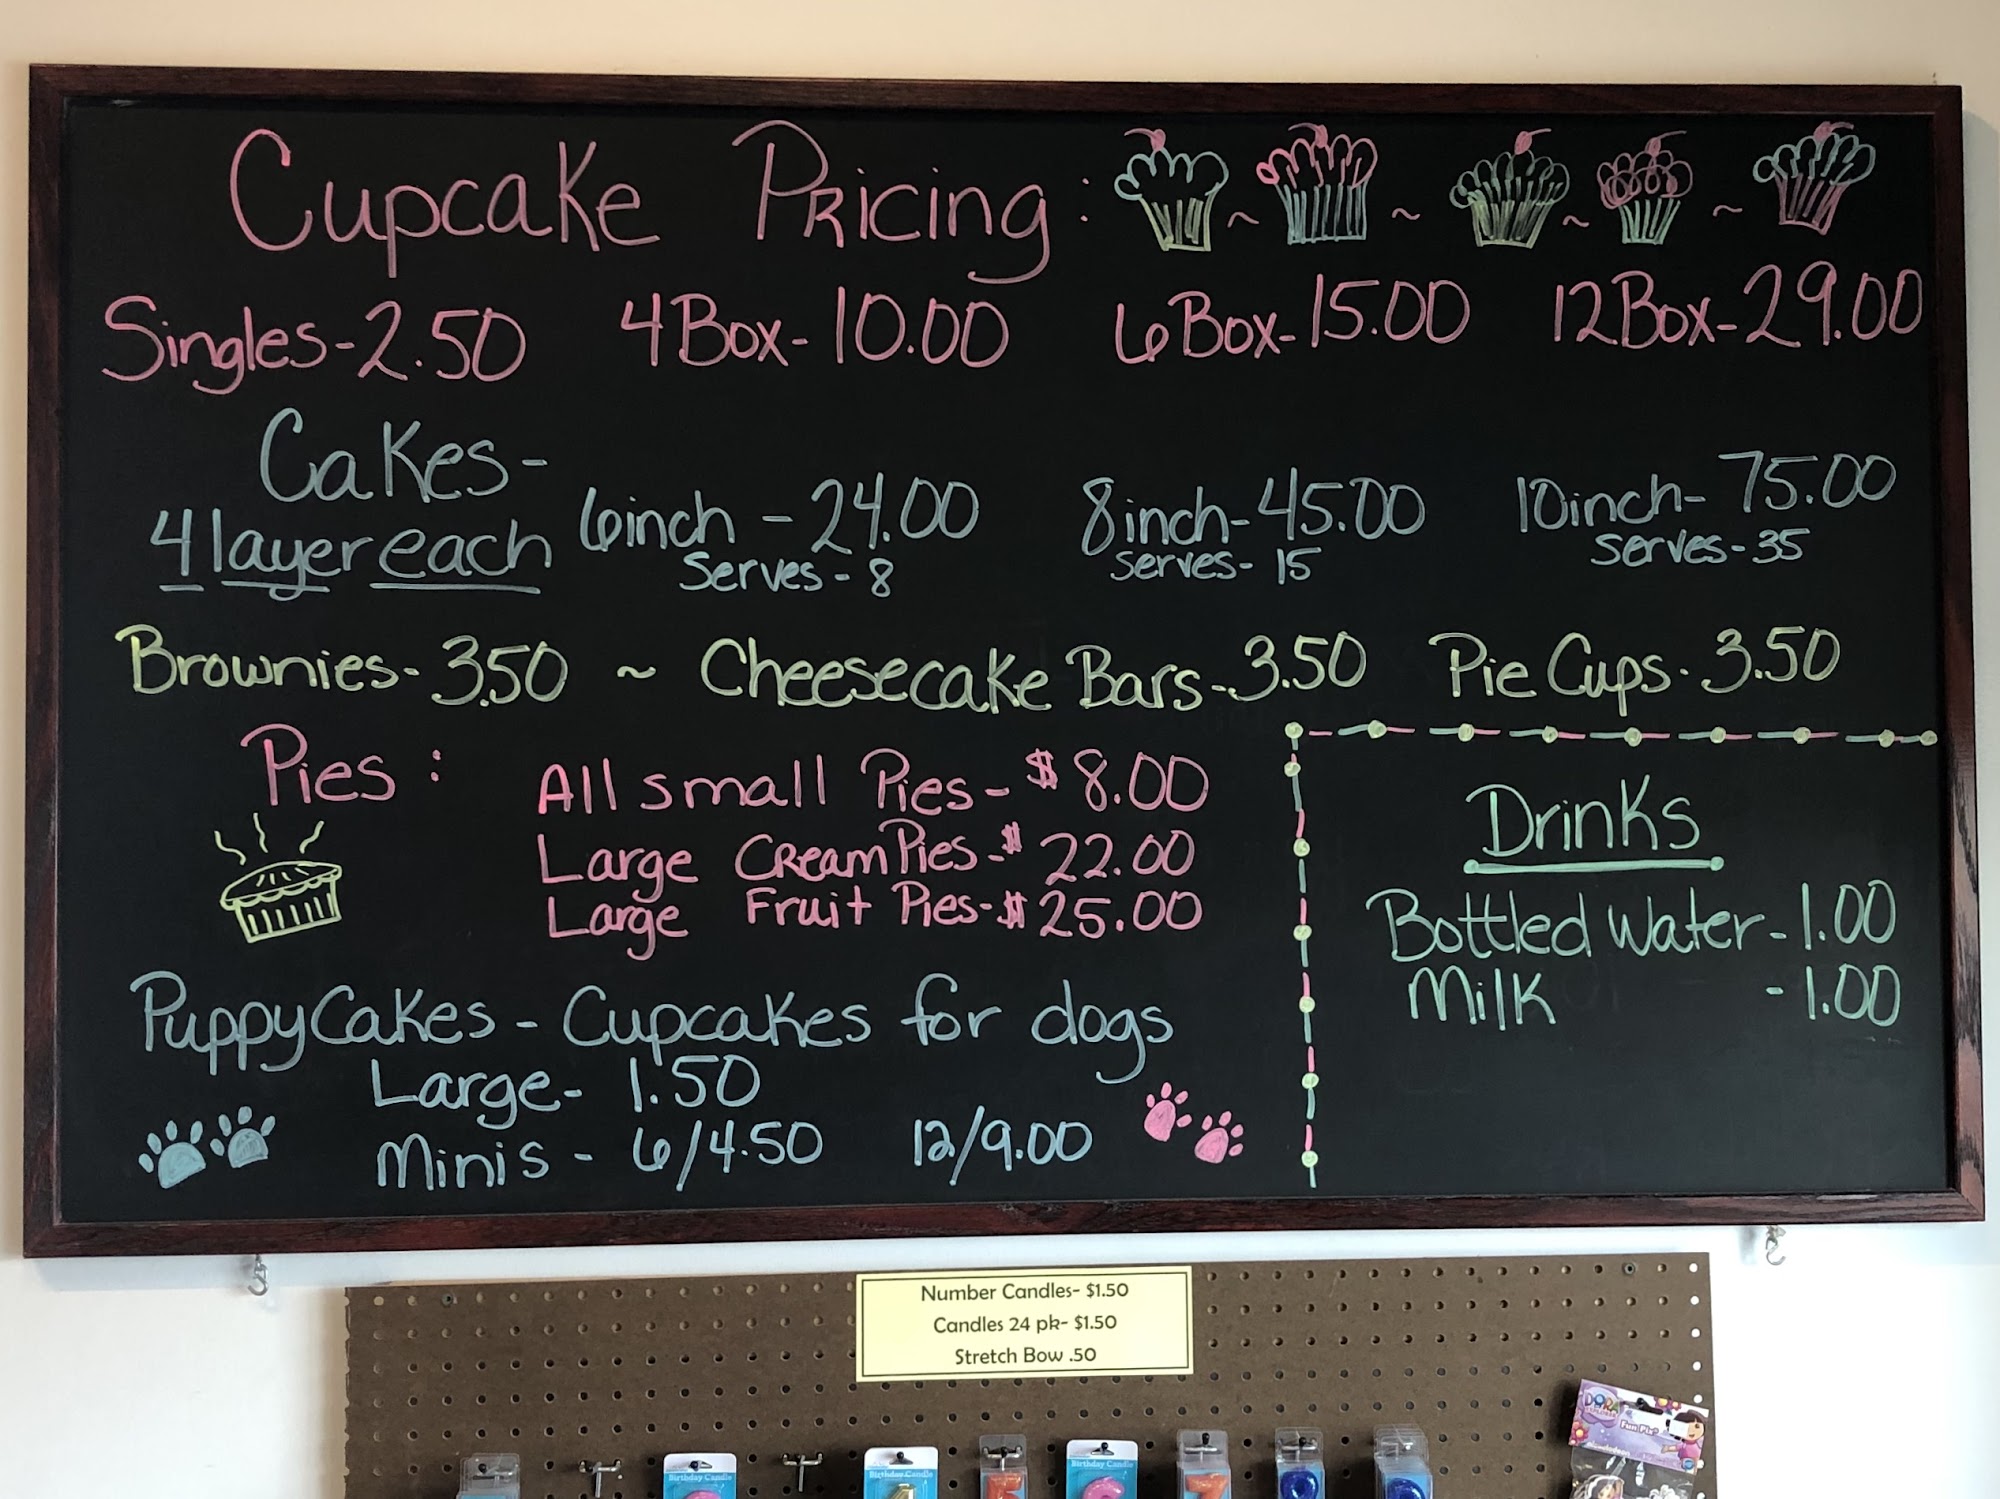 Cupcake Pricing:
Singles-2.50 4Box-10.00 6Box-15.00 12Box-29.00
Cakes-
4 layer each
6inch - 24.00 8inch-45.00 10inch-75.00
Serves-8 serves-15 serves-35
Brownies-3.50 ~ Cheesecake Bars-3.50 Pie Cups-3.50
Pies:
All small Pies-$8.00
Large Cream Pies-$22.00
Large Fruit Pies-$25.00
Drinks
Bottled Water-1.00
Milk -1.00
PuppyCakes-Cupcakes for dogs
Large-1.50
Minis-6/4.50 12/9.00
Number Candles- $1.50
Candles 24 pk- $1.50
Stretch Bow .50
Birthday Candle
Birthday Candle
Birthday Candle
DORA
Fun Pix
nickelodeon